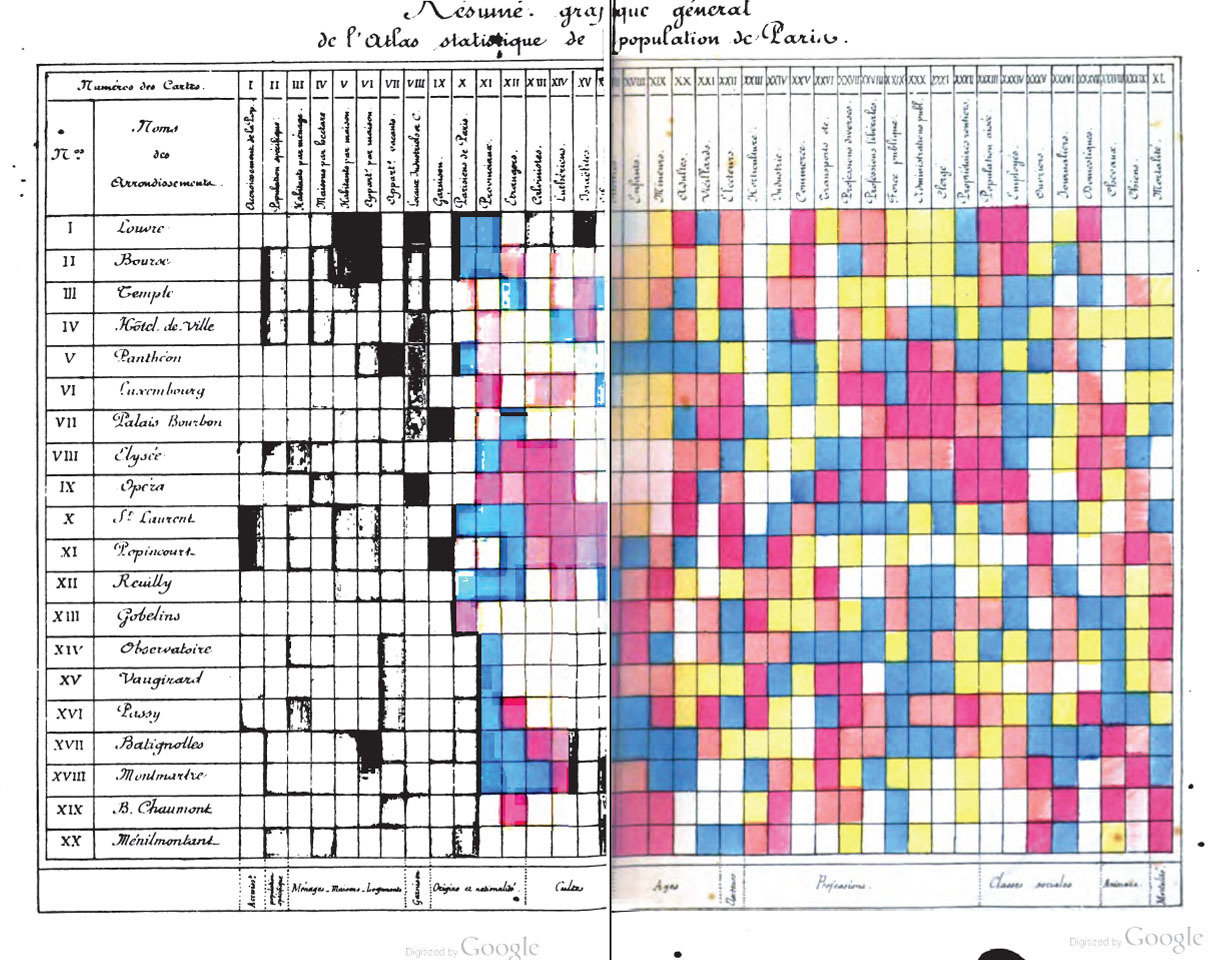 Résumé graphique général
de l'Atlas statistique de population de Paris.
Numéros des Cartes. I II III IV V VI VII VIII IX X XI XII XIII XIV XV XVIII XIX XX XXI XXII XXIII XXIV XXV XXVI XXVII XXVIII XXIX XXX XXXI XXXII XXXIII XXXIV XXXV XXXVI XXXVII XXXVIII XXXIX XL
Nos
Noms
des
Arrondissements.
Population spécifique.
Habitants par ménage.
Maisons par hectare
Habitants par maison
Appart. vacants.
Garnison.
Parisiens de Paris.
Provinciaux.
Etrangers.
Calvinistes.
Luthériens.
Israélites.
Enfants.
Mineurs.
Adultes.
Vieillards.
Electeurs.
Horticulture.
Industrie.
Commerce.
Transports etc.
Professions diverses.
Professions libérales.
Force publique.
Administrations publ.
Clergé.
Propriétaires rentiers.
Population aisée.
Employés.
Ouvriers.
Journaliers.
Domestiques.
Chevaux.
Chiens.
Mortalité.
I Louvre
II Bourse
III Temple
IV Hôtel de Ville
V Panthéon
VI Luxembourg
VII Palais Bourbon
VIII Elysée
IX Opéra
X St Laurent
XI Popincourt
XII Reuilly
XIII Gobelins
XIV Observatoire
XV Vaugirard
XVI Passy
XVII Batignolles
XVIII Montmartre
XIX B. Chaumont
XX Ménilmontant
Accroisst
Population spécifique
Ménages - Maisons - Logements
Garnison
Origine et nationalité.
Cultes
Ages
Electeurs
Professions.
Classes sociales
Animaux.
Mortalité
Digitized by Google
Digitized by Google